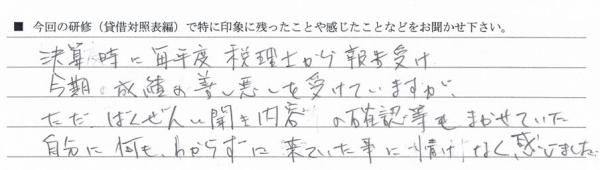 ■ 今回の研修（貸借対照表編）で特に印象に残ったことや感じたことなどをお聞かせ下さい。
決算時に毎年度 税理士から報告受け
今期 成績の善し悪しを受けていますが、
ただ、ばくぜんに聞き内容の確認等もまかせていた
自分に何も、わからずに来ていた事に情けなく、感じました